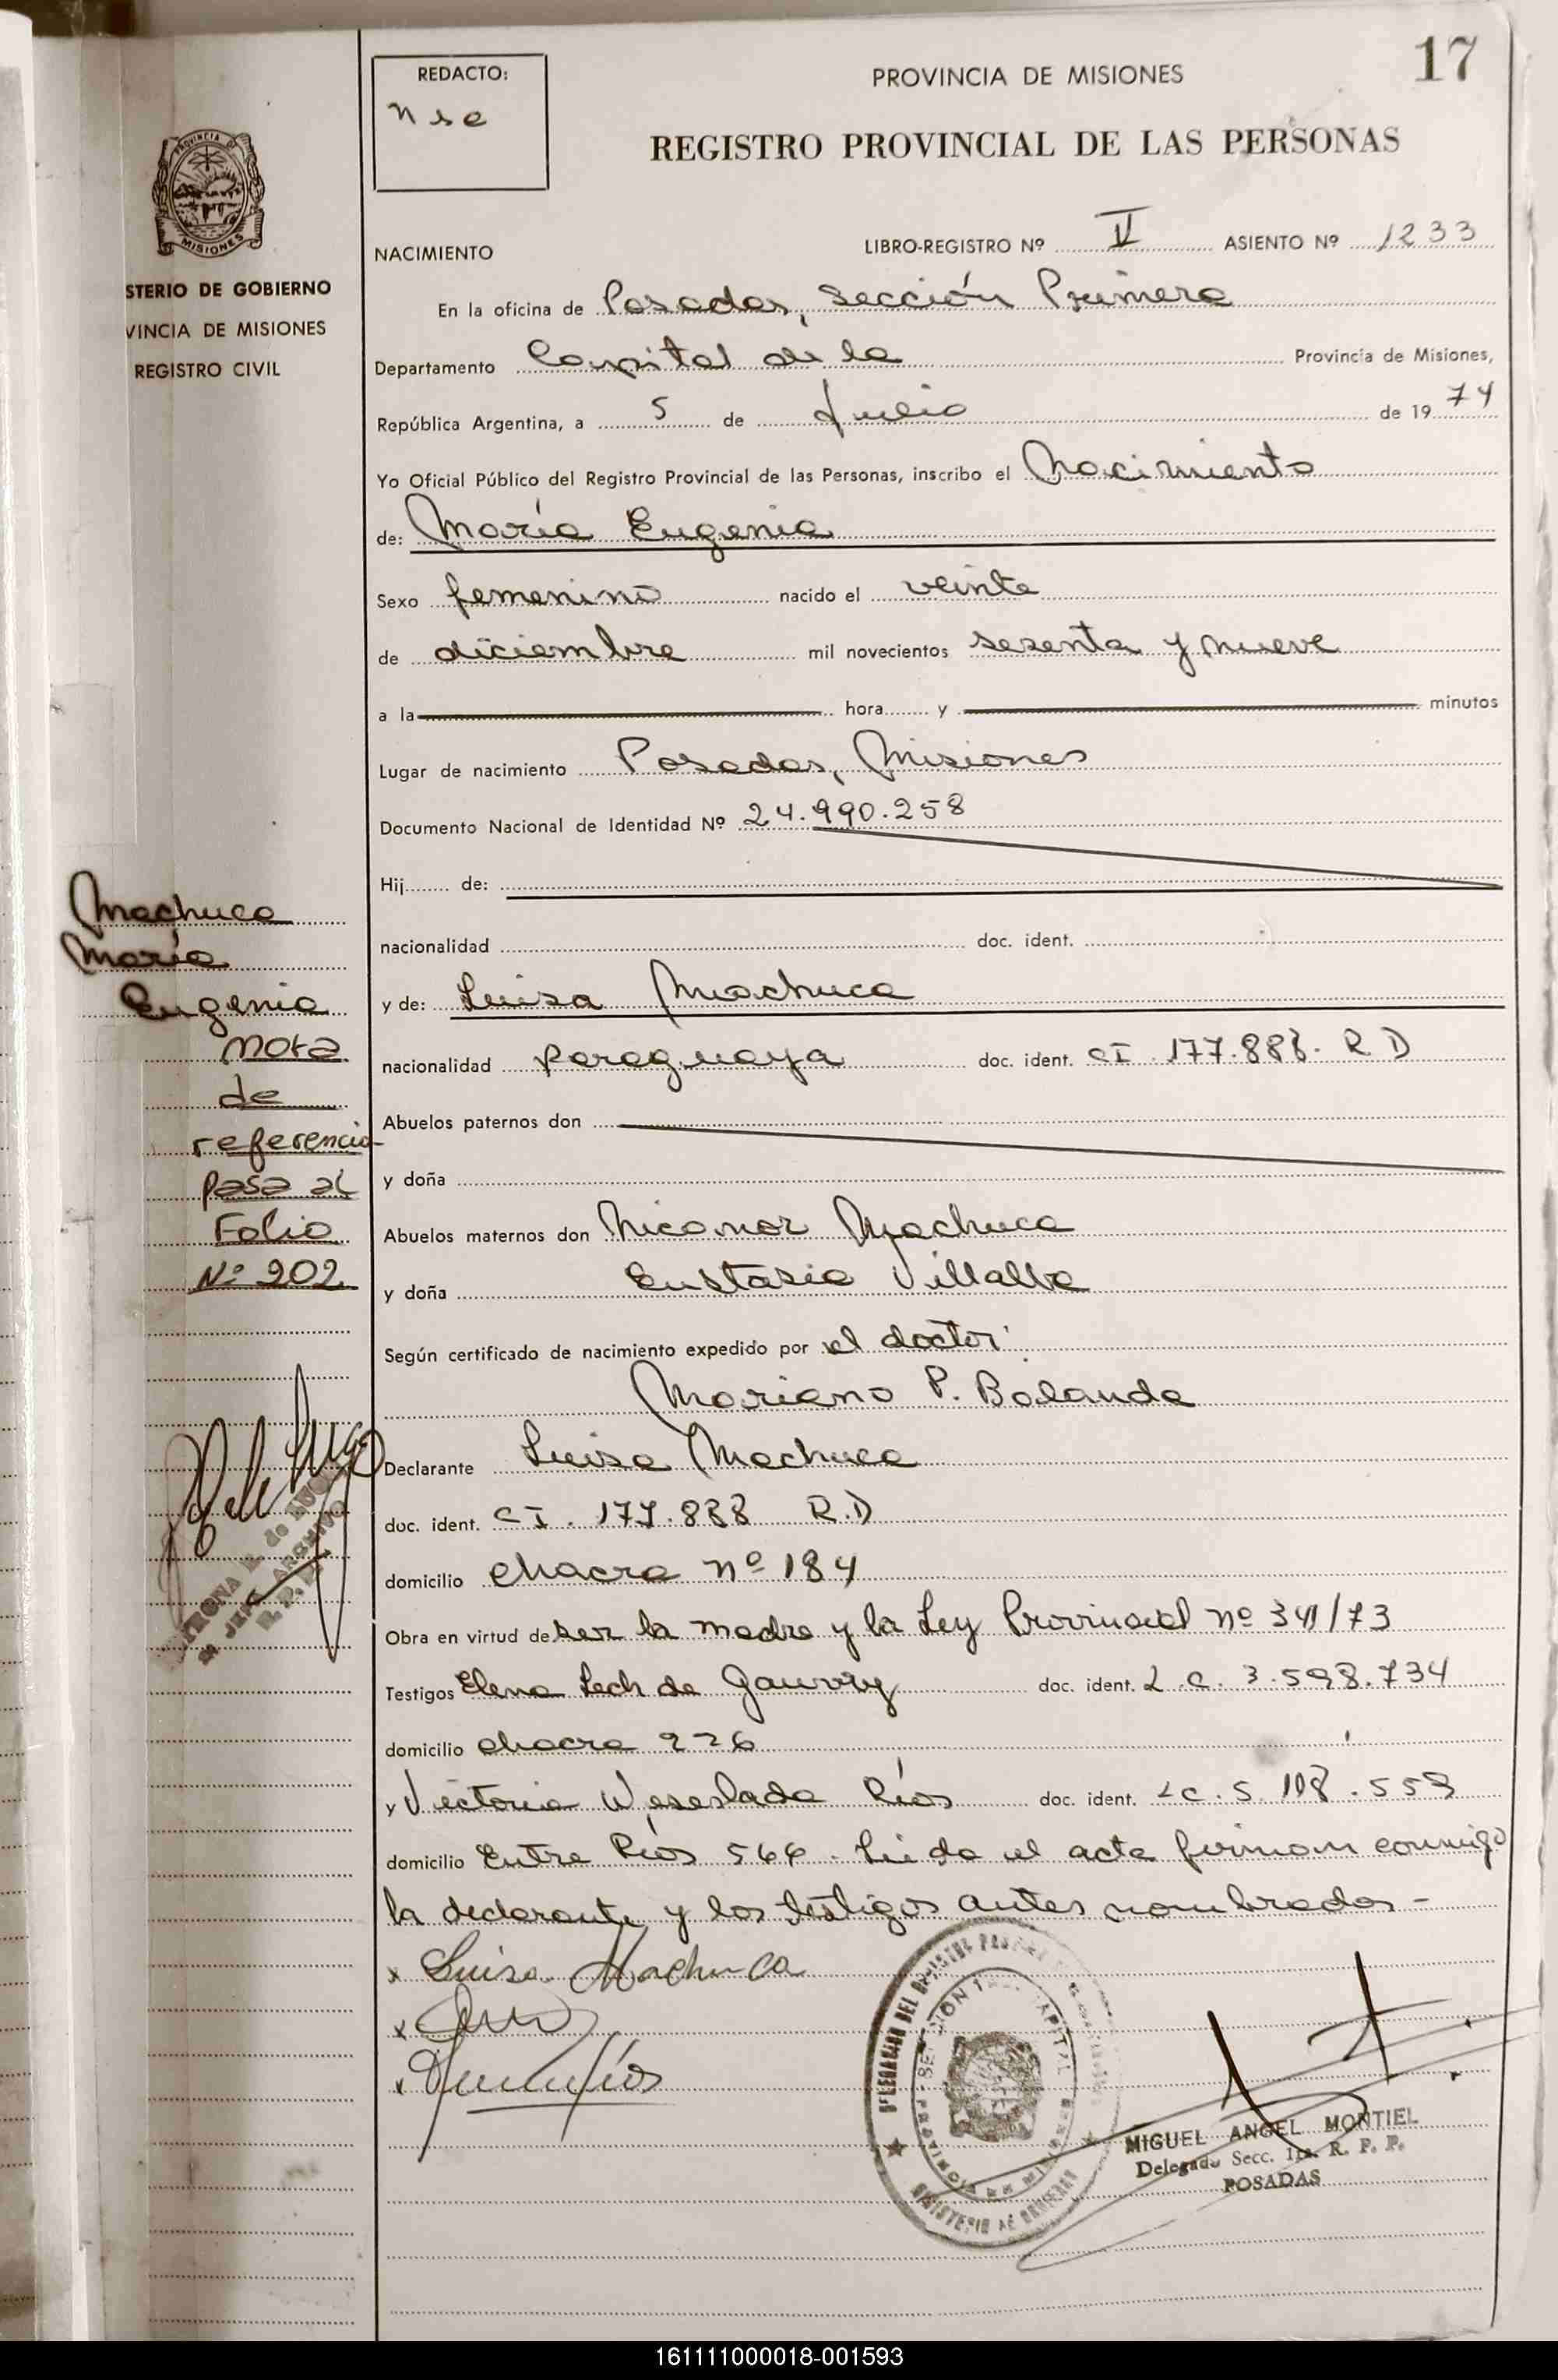 17
REDACTO:
nse
PROVINCIA DE MISIONES
REGISTRO PROVINCIAL DE LAS PERSONAS
PROVINCIA D
MISIONES
STERIO DE GOBIERNO
VINCIA DE MISIONES
REGISTRO CIVIL
NACIMIENTO LIBRO-REGISTRO Nº V ASIENTO Nº 1233
En la oficina de Posadas, Sección Primera
Departamento Capital de la Provincia de Misiones,
República Argentina, a 5 de Julio de 19 74
Yo Oficial Público del Registro Provincial de las Personas, inscribo el Nacimiento
de: María Eugenia
Sexo femenino nacido el veinte
de diciembre mil novecientos sesenta y nueve
a la hora y minutos
Lugar de nacimiento Posadas, Misiones
Documento Nacional de Identidad Nº 24.990.258
Hij de:
nacionalidad doc. ident.
y de: Luisa Machuca
nacionalidad paraguaya doc. ident. CI 177.888. R D
Abuelos paternos don
y doña
Abuelos maternos don Nicanor Machuca
y doña Eustasia Villalba
Según certificado de nacimiento expedido por el doctor
Mariano P. Balanda
Declarante Luisa Machuca
doc. ident. CI. 177.888 R.D
domicilio chacra nº 184
Obra en virtud de ser la madre y la Ley Provincial nº 341/73
Testigos Elena Lech de doc. ident. L.C. 3.598.734
domicilio chacra 226
y Victoria Weseslada Ríos doc. ident. LC. 5. 108.559
domicilio Entre Ríos 566. Leida el acta firman conmigo
la declarante y los testigos antes nombrados -
x Luisa Machuca
x
x
MIGUEL ANGEL MONTIEL
Delegado Secc. 1ra. R. P. P.
POSADAS
Machuca
María
Eugenia
Nota
de
referencia
pasa al
Folio
Nº 202
161111000018-001593